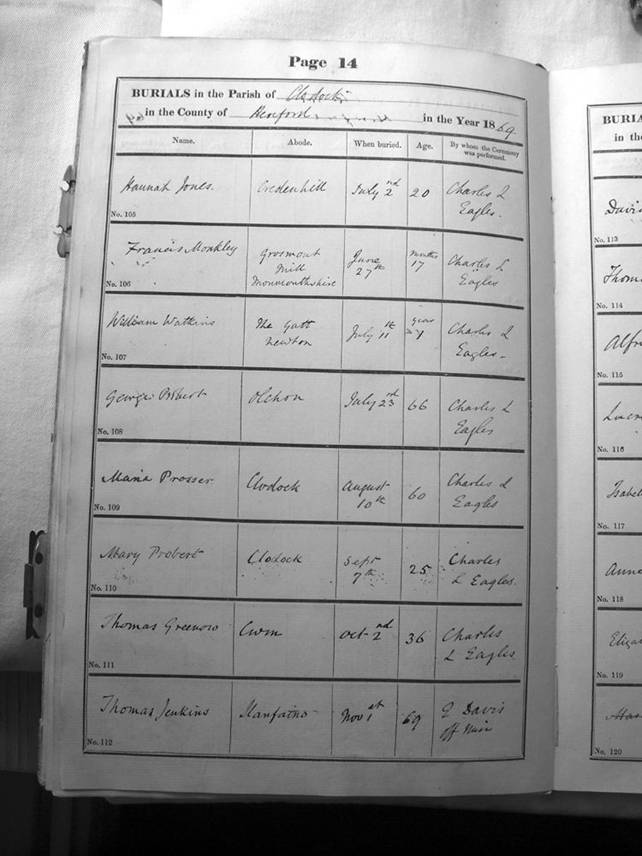 Page 14
BURIALS in the Parish of Clodock
in the County of Hereford in the Year 1869
Name. Abode. When buried. Age. By whom the Ceremony was performed.
Hannah Jones. Credenhill July 2nd 20 Charles L Eagles.
No. 105
Francis Monkley Grosmont Mill Monmouthshire June 27th months 17 Charles L Eagles
No. 106
William Watkins The Newton July 11th years Charles L Eagles
No. 107
George Probert Olchon July 23rd 66 Charles L Eagles
No. 108
Maria Prosser Clodock August 10th 60 Charles L Eagles
No. 109
Mary Probert Clodock Sept 7th 25 Charles L Eagles.
No. 110
Thomas Greenow Cwm Oct 2nd 36 Charles L Eagles
No. 111
Thomas Jenkins Nov 1st 69 Davis off Min
No. 112
BURIA
in the
Davi
No. 113
Thom
No. 114
Alfr
No. 115
Lucr
No. 116
Isabel
No. 117
Anne
No. 118
Eliza
No. 119
No. 120